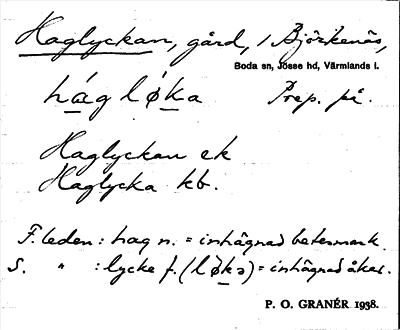 Haglyckan, gård, i Björkenäs,
Boda sn, Jösse hd, Värmlands l.
hág lø̀ka Prep. på.
Haglyckan ek
Haglycka kb.
F. leden: hag n. = inhägnad betesmark.
S. " : lycke f. (lø̀kə) = inhägnad åker.
P. O. GRANÉR 1938.